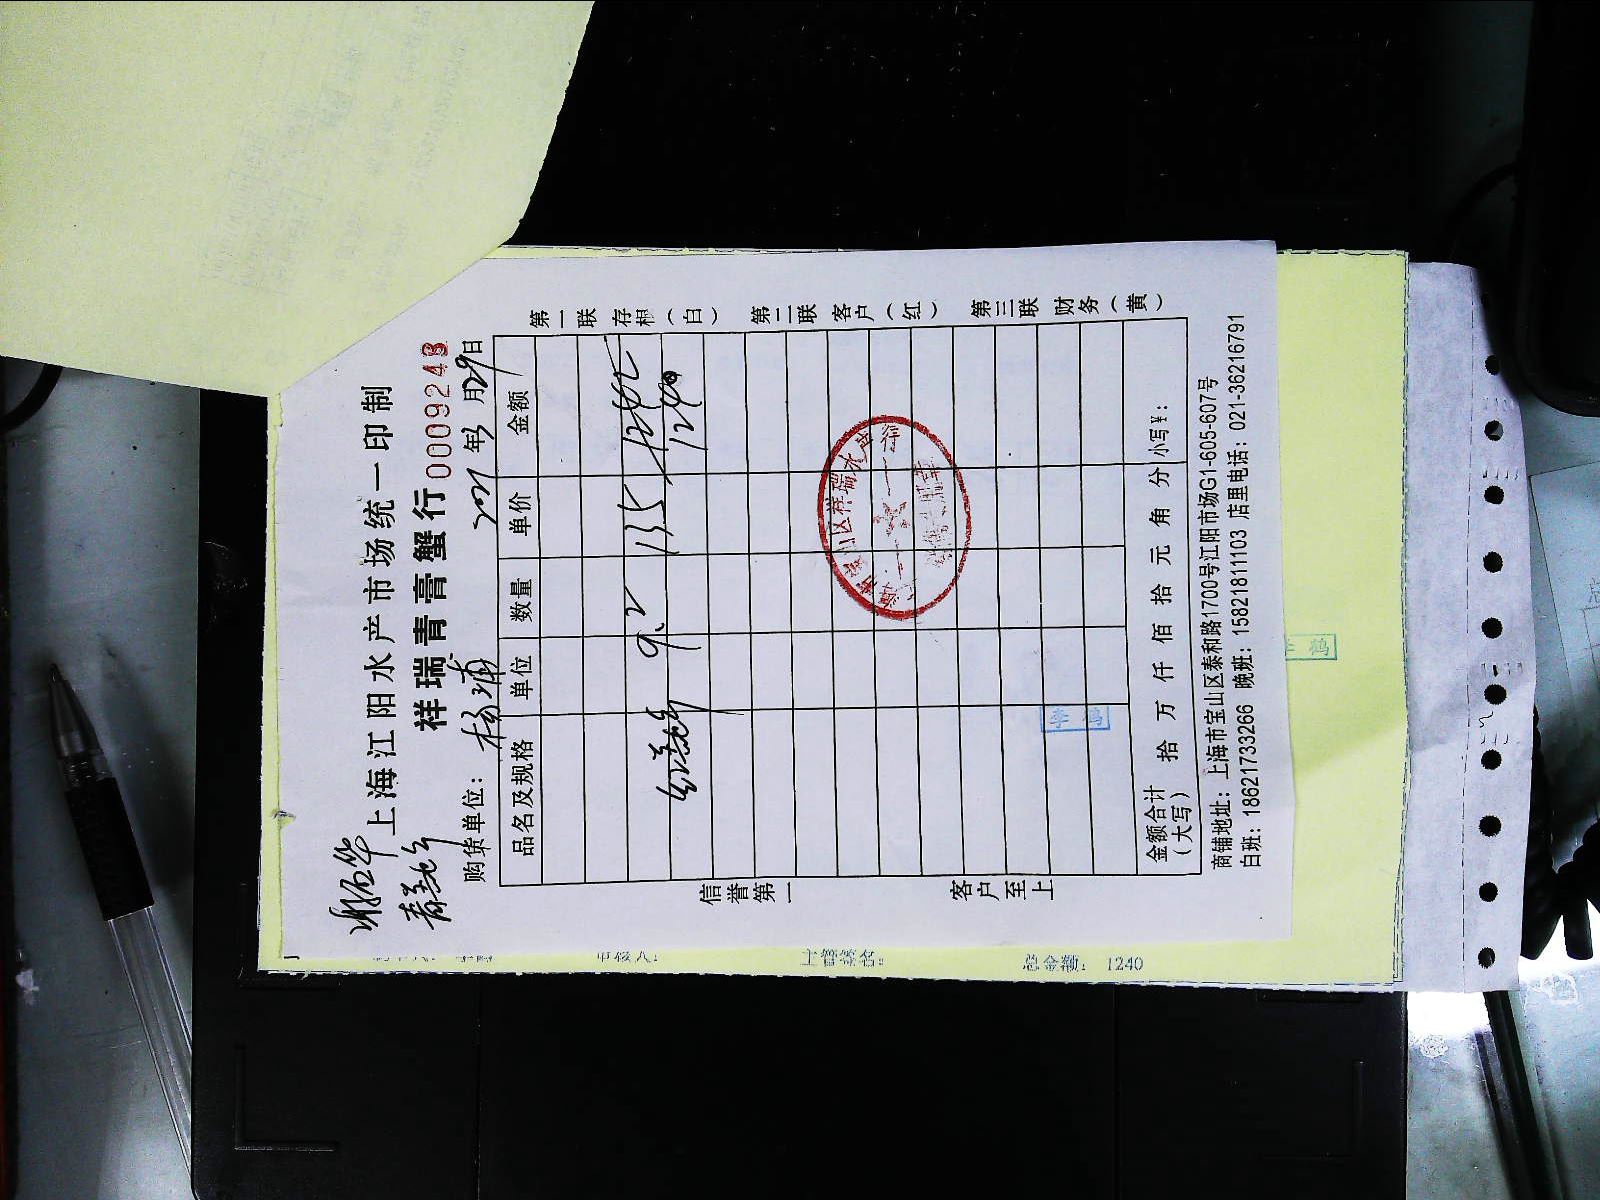 上海江阳水产市场统一印制
祥瑞青膏蟹行
0009243
购货单位：杨浦
年3月29日
品名及规格 单位 数量 单价 金额
红膏蟹 9.2 135 1242
1240
第一联 存根（白） 第二联 客户（红） 第三联 财务（黄）
信誉第一 客户至上
金额合计（大写） 拾 万 仟 佰 拾 元 角 分 小写¥：
商铺地址：上海市宝山区泰和路1700号江阳市场G1-605-607号
白班：18621733266 晚班：15821811103 店里电话：021-36216791
李鹤
1240